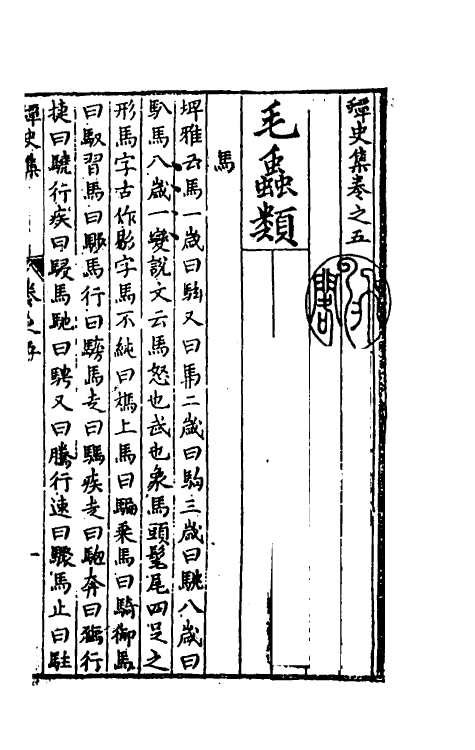 稗史集卷之五
毛蟲類
馬
埤雅云馬一歲曰馵又曰馬二歲曰駒三歲曰駣八歲曰
馭馬八歲一變說文云馬怒也武也象馬頭髦尾四足之
形馬字古作影字馬不純曰榪上馬曰騙乘馬曰騎御馬
曰馭習馬曰馬行曰馬走曰疾走曰馳奔曰行
捷曰驍行疾曰駸馬馳曰騁又曰騰行速曰驟馬止曰駐
稗史集 卷之五